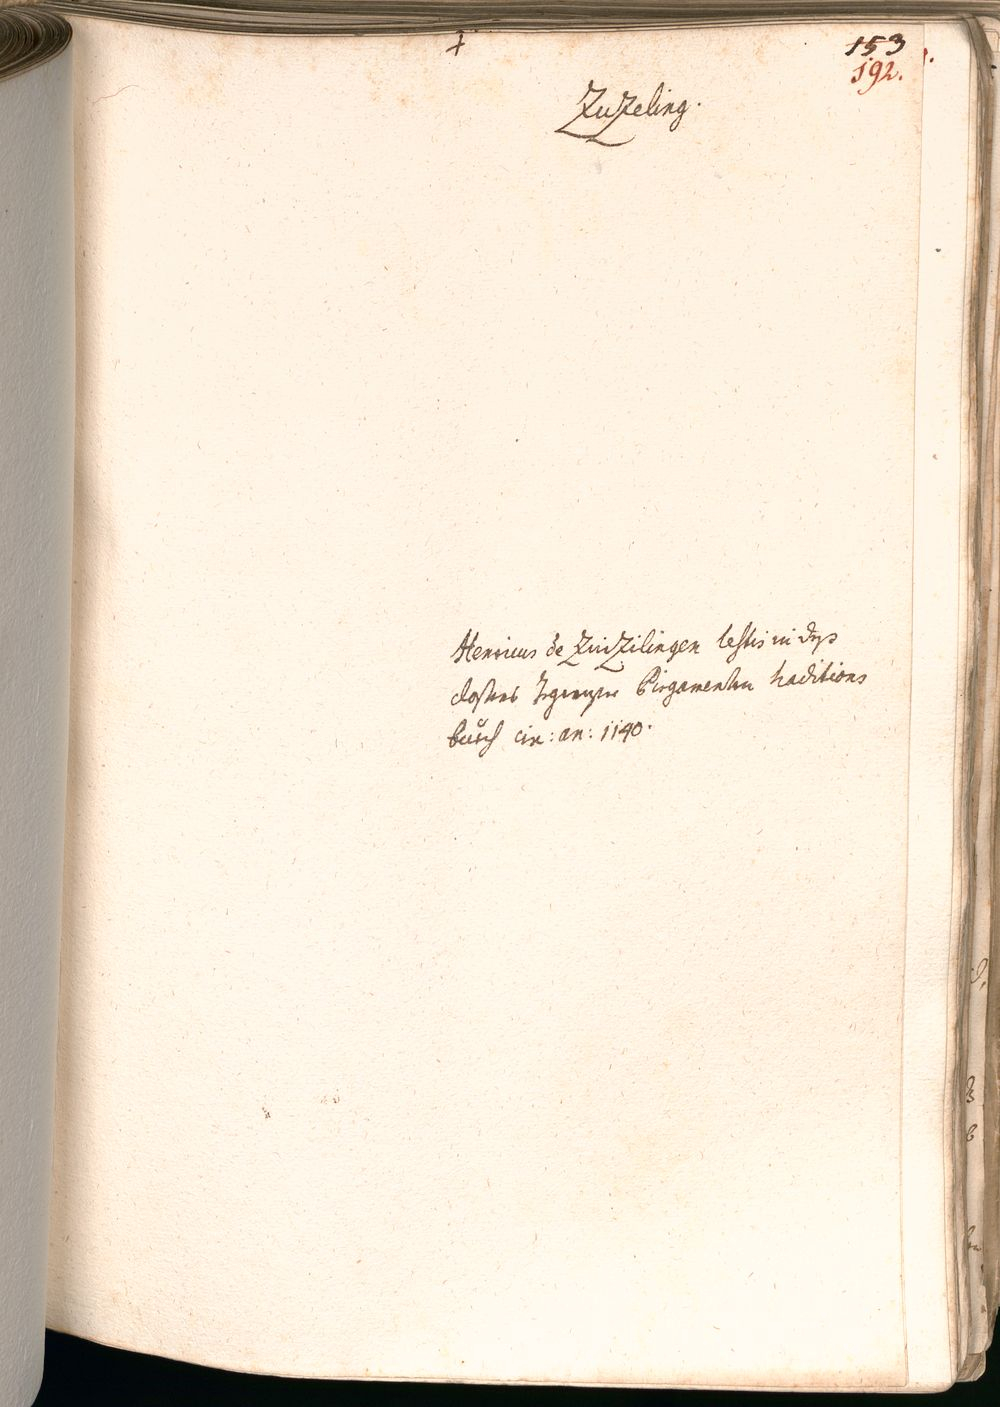 +
153
192.
ZuZeling.
Henricus de ZuiZilingen testis in dess
closters Pirgamenten traditions
buech cir: an: 1140.